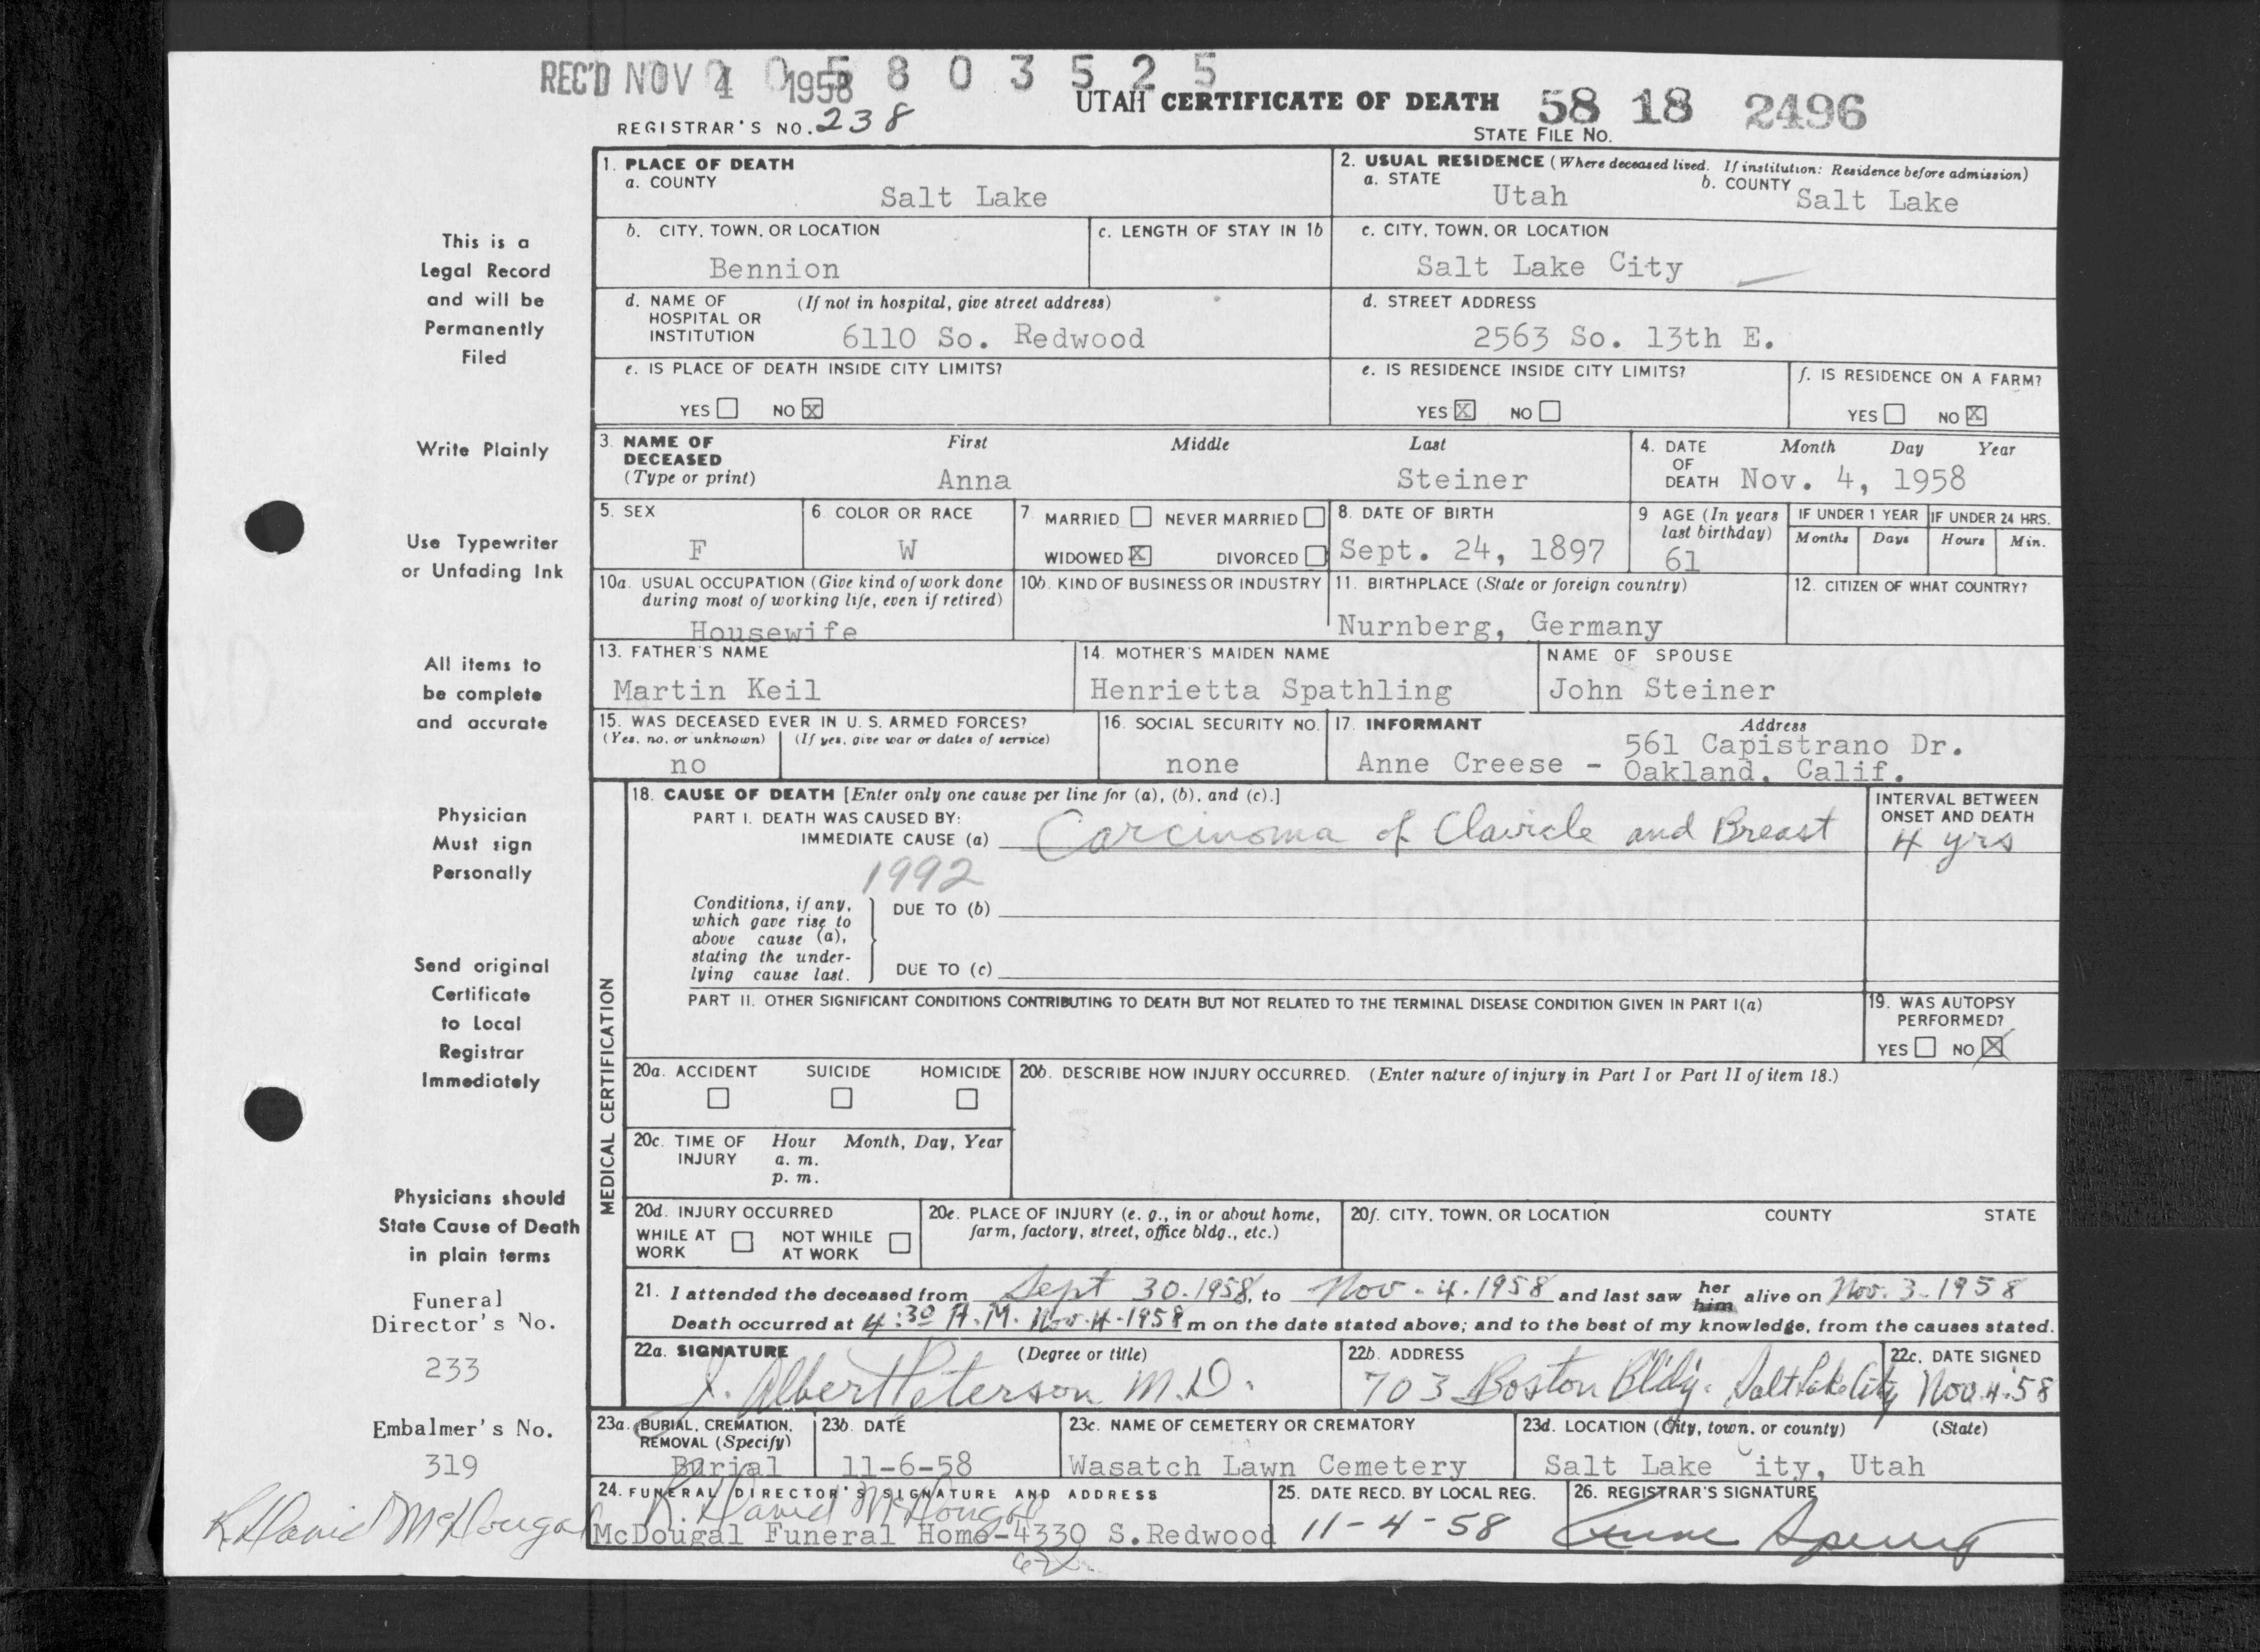 REC'D NOV 4 1958
0 5 8 0 3 5 2 5
UTAH CERTIFICATE OF DEATH
58 18 2496
REGISTRAR'S NO. 238
STATE FILE NO.
This is a
Legal Record
and will be
Permanently
Filed
Write Plainly
Use Typewriter
or Unfading Ink
All items to
be complete
and accurate
Physician
Must sign
Personally
Send original
Certificate
to Local
Registrar
Immediately
Physicians should
State Cause of Death
in plain terms
Funeral
Director's No.
233
Embalmer's No.
319
K. David McDougal
1. PLACE OF DEATH
a. COUNTY
Salt Lake
2. USUAL RESIDENCE (Where deceased lived. If institution: Residence before admission)
a. STATE
Utah
b. COUNTY
Salt Lake
b. CITY, TOWN, OR LOCATION
Bennion
c. LENGTH OF STAY IN 1b
c. CITY, TOWN, OR LOCATION
Salt Lake City
d. NAME OF HOSPITAL OR INSTITUTION
(If not in hospital, give street address)
6110 So. Redwood
d. STREET ADDRESS
2563 So. 13th E.
e. IS PLACE OF DEATH INSIDE CITY LIMITS?
YES NO X
e. IS RESIDENCE INSIDE CITY LIMITS?
YES X NO
f. IS RESIDENCE ON A FARM?
YES NO X
3. NAME OF DECEASED
(Type or print)
First Middle Last
Anna Steiner
4. DATE OF DEATH
Month Day Year
Nov. 4, 1958
5. SEX
F
6. COLOR OR RACE
W
7. MARRIED NEVER MARRIED
WIDOWED X DIVORCED
8. DATE OF BIRTH
Sept. 24, 1897
9 AGE (In years last birthday)
61
IF UNDER 1 YEAR
Months Days
IF UNDER 24 HRS.
Hours Min.
10a. USUAL OCCUPATION (Give kind of work done
during most of working life, even if retired)
Housewife
10b. KIND OF BUSINESS OR INDUSTRY
11. BIRTHPLACE (State or foreign country)
Nurnberg, Germany
12. CITIZEN OF WHAT COUNTRY?
13. FATHER'S NAME
Martin Keil
14. MOTHER'S MAIDEN NAME
Henrietta Spathling
NAME OF SPOUSE
John Steiner
15. WAS DECEASED EVER IN U. S. ARMED FORCES?
(Yes, no, or unknown) (If yes, give war or dates of service)
no
16. SOCIAL SECURITY NO.
none
17. INFORMANT
Address
Anne Creese - 561 Capistrano Dr.
Oakland, Calif.
MEDICAL CERTIFICATION
18. CAUSE OF DEATH [Enter only one cause per line for (a), (b), and (c).]
PART I. DEATH WAS CAUSED BY:
IMMEDIATE CAUSE (a) Carcinoma of Clavicle and Breast
INTERVAL BETWEEN
ONSET AND DEATH
4 yrs
1992
Conditions, if any,
which gave rise to
above cause (a),
stating the under-
lying cause last.
DUE TO (b)
DUE TO (c)
PART II. OTHER SIGNIFICANT CONDITIONS CONTRIBUTING TO DEATH BUT NOT RELATED TO THE TERMINAL DISEASE CONDITION GIVEN IN PART I(a)
19. WAS AUTOPSY
PERFORMED?
YES NO X
20a. ACCIDENT SUICIDE HOMICIDE
20b. DESCRIBE HOW INJURY OCCURRED. (Enter nature of injury in Part I or Part II of item 18.)
20c. TIME OF INJURY
Hour Month, Day, Year
a. m.
p. m.
20d. INJURY OCCURRED
WHILE AT WORK NOT WHILE AT WORK
20e. PLACE OF INJURY (e. g., in or about home,
farm, factory, street, office bldg., etc.)
20f. CITY, TOWN, OR LOCATION COUNTY STATE
21. I attended the deceased from Sept 30.1958, to Nov. 4.1958 and last saw her him alive on Nov. 3.1958
Death occurred at 4:30 A.M. Nov.4-1958 m on the date stated above; and to the best of my knowledge, from the causes stated.
22a. SIGNATURE (Degree or title)
J. Albert Peterson M.D.
22b. ADDRESS
703 Boston Bldg. Salt Lake City
22c. DATE SIGNED
Nov.4.58
23a. BURIAL, CREMATION,
REMOVAL (Specify)
Burial
23b. DATE
11-6-58
23c. NAME OF CEMETERY OR CREMATORY
Wasatch Lawn Cemetery
23d. LOCATION (City, town, or county) (State)
Salt Lake City, Utah
24. FUNERAL DIRECTOR'S SIGNATURE AND ADDRESS
K. David McDougal
McDougal Funeral Home-4330 S.Redwood
25. DATE RECD. BY LOCAL REG.
11-4-58
26. REGISTRAR'S SIGNATURE